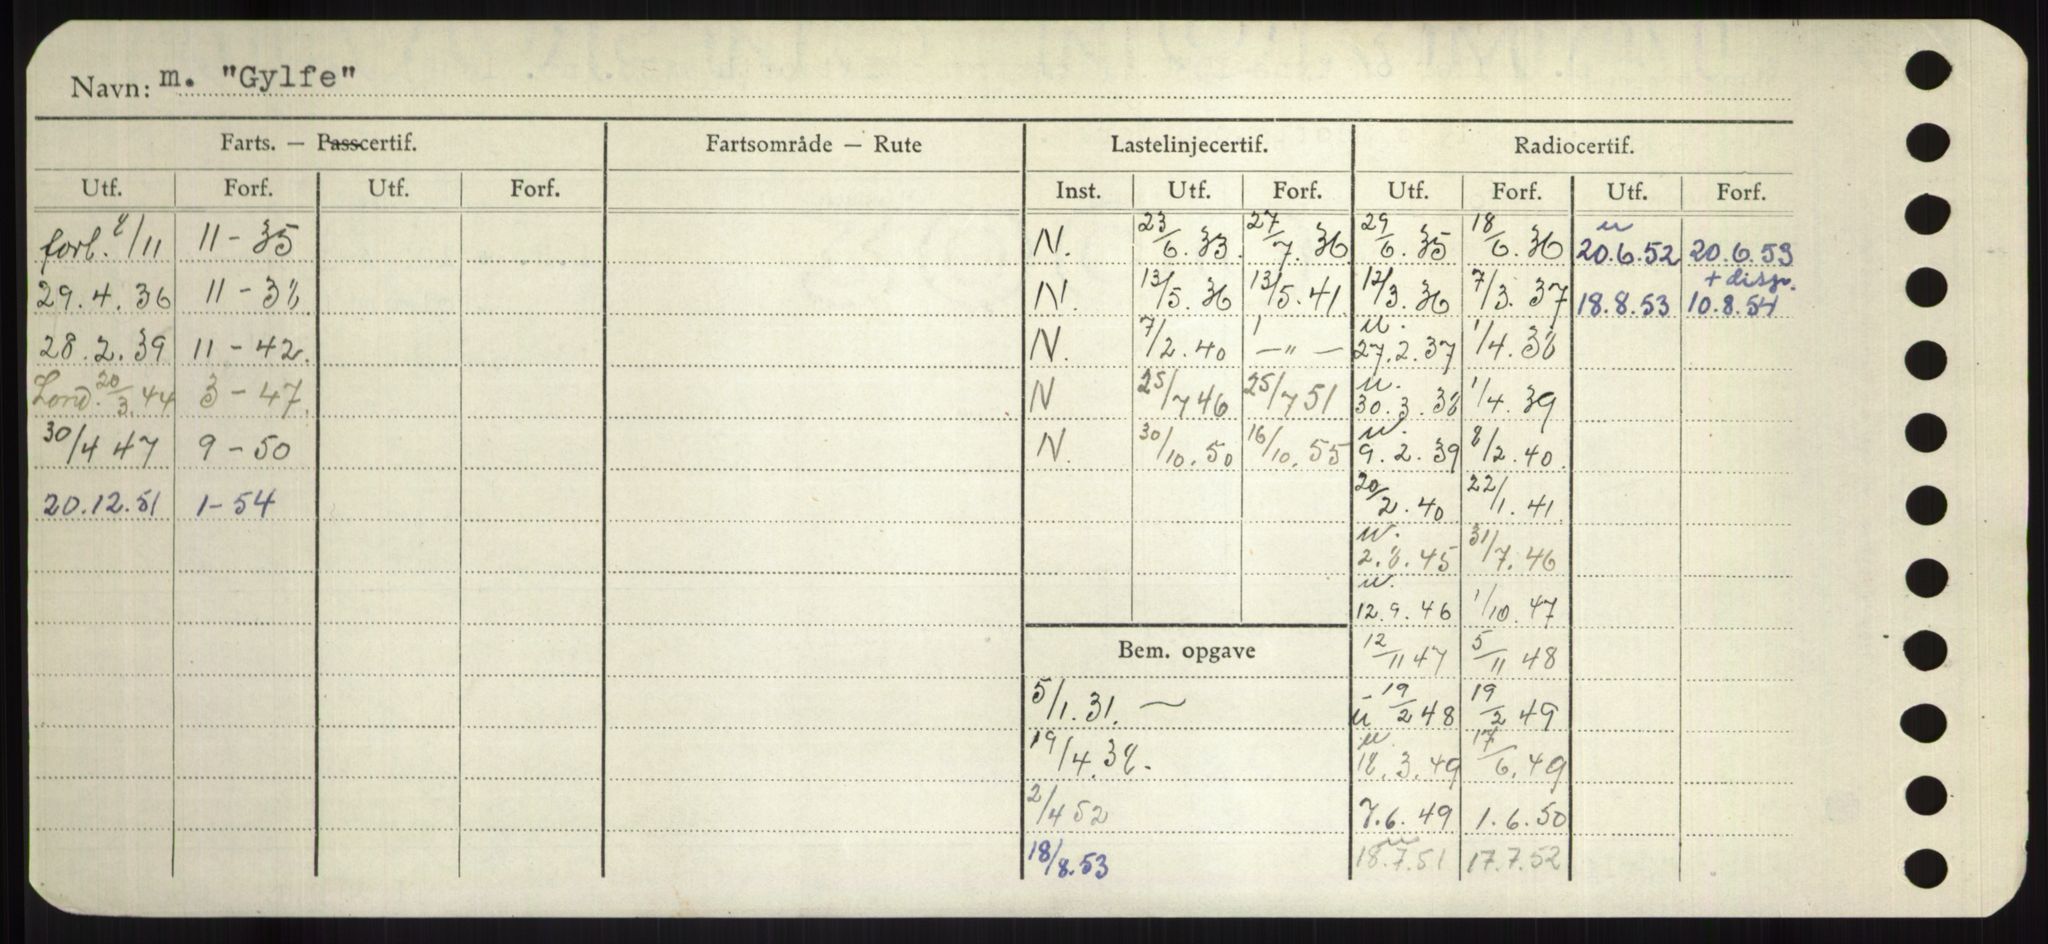 Navn: m. "Gylfe"
Farts. — Passcertif. Fartsområde — Rute Lastelinjecertif. Radiocertif.
Utf. Forf. Utf. Forf. Inst. Utf. Forf. Utf. Forf. Utf. Forf.
forl. 8/11 11-35 N. 23/6.33. 27/7.36 29/6.35 18/6.36 u 20.6.52 20.6.53
29.4.36 11-38 N. 13/5.36 13/5.41. 12/3.36 7/3.37 18.8.53 + disp. 10.8.54
28.2.39 11-42. N. 7/2.40 —"— u. 27.2.37 1/4.38
Lond. 20/3.44 3-47. N 25/7 46 25/7 51 u. 30.3.38 1/4.39
30/4 47 9-50 N. 30/10.50 16/10.55 u. 9.2.39 8/2.40.
20.12.51 1-54 20/2.40 22/1.41.
u. 2.8.45 31/7.46
u. 12.9.46 1/10.47
Bem. opgave 12/11 47 5/11 48
5/1.31. ~ u 19/2 48 19/2 49
19/4.38. u. 18.3.49 17/6.49
2/4 52 7.6.49 1.6.50
18/8.53 u 18.7.51 17.7.52